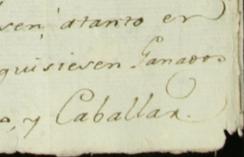 sen, atanto en
quisiesen Ganados
o, y Caballar.